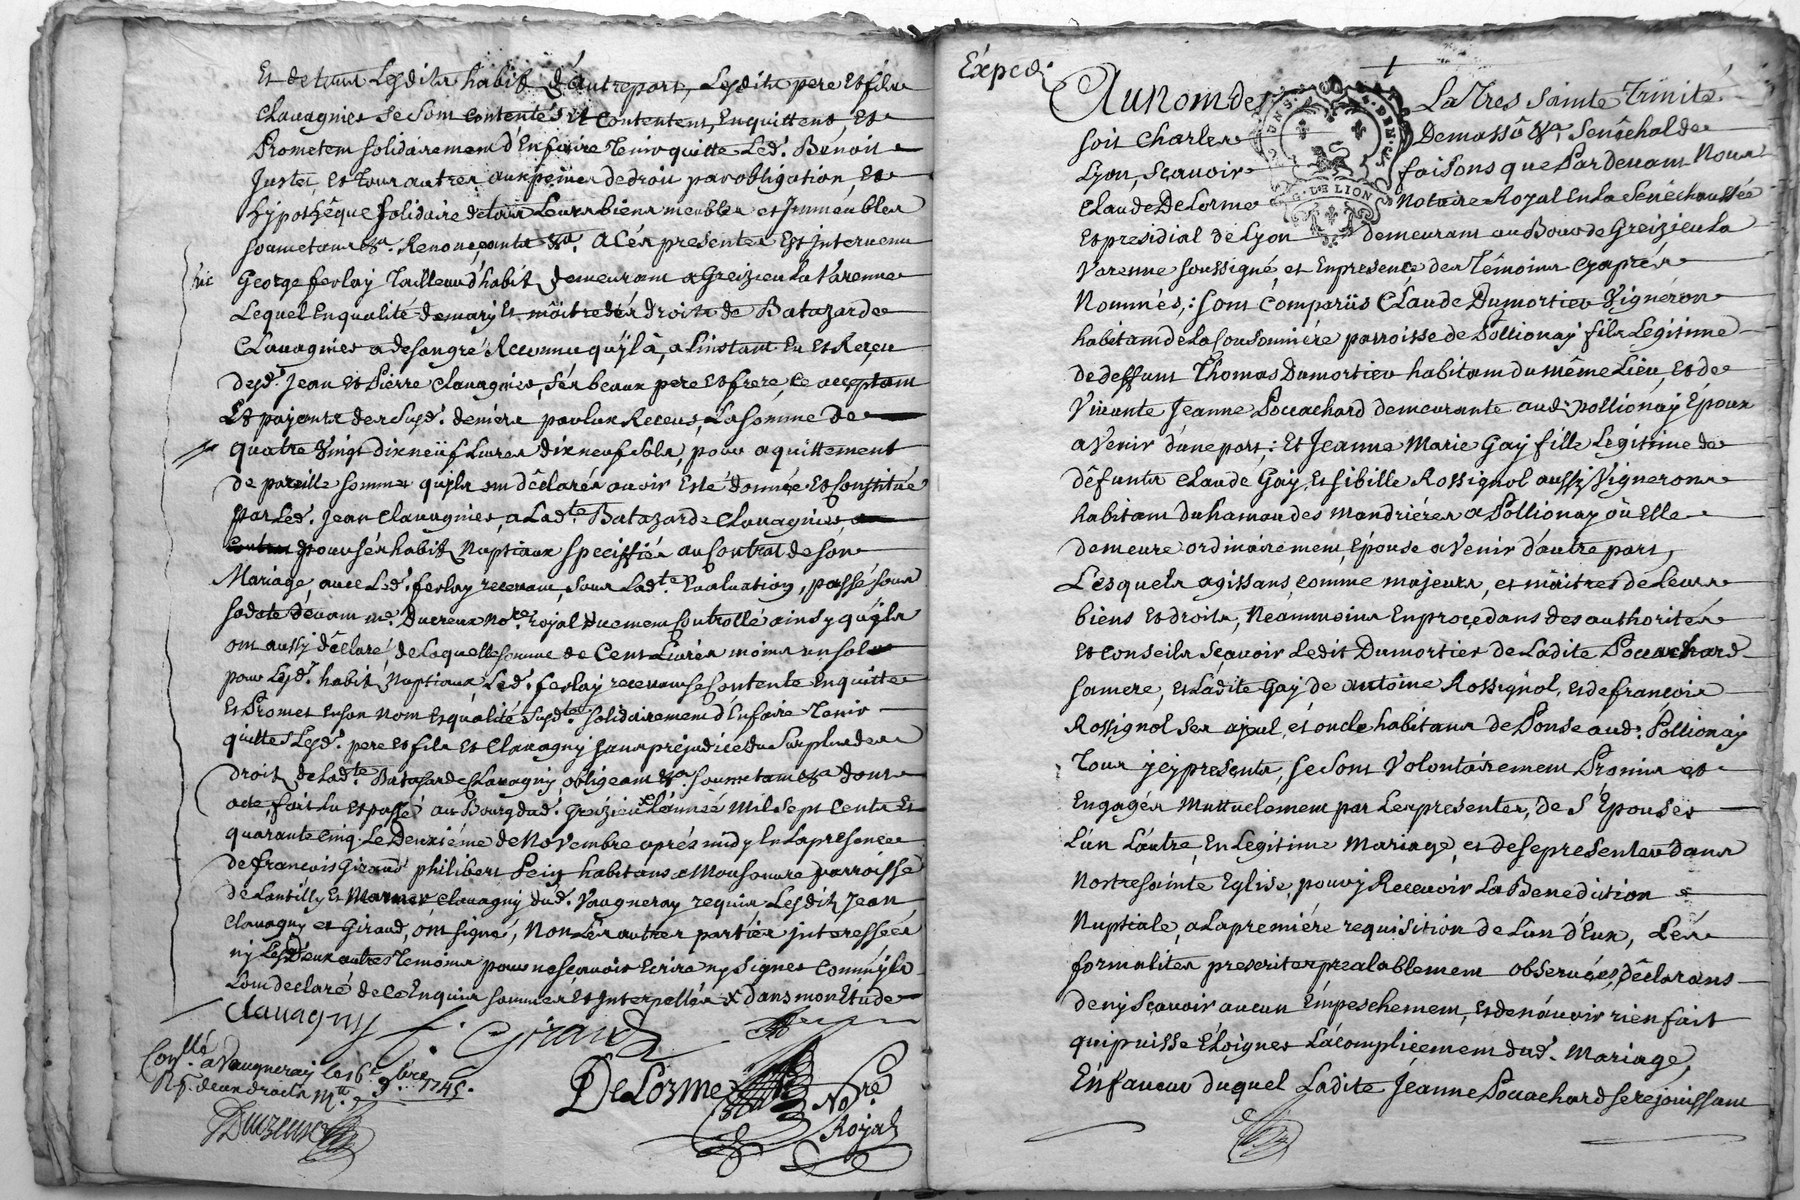 Et de tous Lesdits habits d'autrepart, Lesdits pere Et fils
Clavagnier se sont contentés Et Contentent, Enquittent, Et
Prometent solidairement d'En faire Tenir quitte Led. Benoit
Juste, et tous autres aux peines de droit par obligation, Et
hypothêque solidaire de tous Leurs biens meubles et Immeubles
soumetans &a. Renonçants &a. A Cés presentes Est Intervenu
hic George ferlay Tailleur d'habits demeurant a Greizieu La Varenne
Lequel En qualité de mary Et maître dés droits de Batazarde
Clavagnier a de son gré Reconnu qu'jl à, a L'instant Eu et Reçeu
desd. Jean Et Pierre Clavagnier, sés beaux pere Et frere, Ce acceptant
Et payants des susd. deniers par Eux Receus, La somme de
quatre Vingt dixneuf Livres dixneuf sols, pour aquittement
de pareille somme qu'jls ont déclarés avoir Esté donnée Et Constitué
par Led. Jean Clavagnier, a Lad.te Batazarde Clavagnier,
pour sés habits Nuptiaux speciffiés au Contrat de son
Mariage, avec Led. ferlay recevant, sous Lad.te Evaluation, passé sous
sa date devant me. Ducreux No.re royal duement Controllé ainsy qu'jls
ont aussy déclaré, de Laquelle somme de Cent Livres moins un sol
pour Lesd. habits Nuptiaux, Led. ferlay recevant se Contente En quitte
Et Promet En son nom Et qualité susd.te solidairement d'En faire Tenir
quittes Lesd. pere Et fils Et Clavagny sans prejudice du surplus des
droits de Lad.te Batazarde Clavagny, obligeant &a soumetant &a dont
acte, fait Lu Et passé au Bourg dud. Greizieu L'année Mil sept Cents Et
quarante Cinq. Le Deuxiéme de Novembre aprés midy En La presence
de francois Giraud philibert Pein habitans a Monsonvre parroisse
de Lentilly Et Clavagny dud. Vaugneray requis Lesdits Jean
Clavagny et Giraud, ont signé, Non Lés autres parties jnteressées
ny Les deux autres Temoins pour ne sçavoir Ecrire ny signer Comm'jls
L'ont declaré de Ce Enquis sommés Et Interpellés x dans mon Etude
Clavagny f. Giraud
DeLorme No.re Royal
Con.llé a Vaugneray le 16e 9bre 1745.
Exped.
Au nom de La Tres Sainte Trinité
soit Charles Demassô &a, Senéchal de
Lyon, Sçavoir faisons que Pardevant Nous
Claude DeLorme Notaire Royal En La Senéchaussée
Et presidial de Lyon demeurant au Bourg de Greizieu La
Varenne soussigné, et En presence des Témoins Cy aprés
Nommés; sont Compariis Claude Dumortier Vignéron
habitant de La Sousonniére parroisse de Pollionay fils Legitime
de deffunt Thomas Dumortier habitant du même Lieu, Et de
Vivante Jeanne Pouachard demeurante aud. Pollionay Epoux
a Venir d'une part; Et Jeanne Marie Gay fille Legitime de
défunts Claude Gay, Et sibille Rossignol aussy Vignerons
habitant du hameau des mandriéres a Pollionay où Elle
demeure ordinairement Epouse a Venir d'autre part,
Lésquels agissans, Comme majeurs, et maîtres de Leurs
biens Et droits, Neammoins En proçedans des authorités
Et Conseils sçavoir Ledit Dumortier de Ladite Pouachard
sa mere, et Ladite Gay de antoine Rossignol, et de françois
Rossignol ses ajeul, et oncle habitans de Ponse aud. Pollionay
Tous jcy presents, se sont Volontairement Promis et
Engagés Muttuelement par Les presentes, de s'Epouser
L'un L'autre, En Legitime Mariage, et de se presenter dans
Nostre sainte Eglise, pour y Recevoir La Benediction
Nuptiale, a La premiére requisition de L'un d'Eux, Lés
formalités prescrites prealablement observées, déclarans
de ny sçavoir aucun Empeschement, et de n'avoir rien fait
qui puisse Eloigner L'acomplicement dud. Mariage,
En faveur duquel Ladite Jeanne Pouachard se rejouissant
G. DE LION